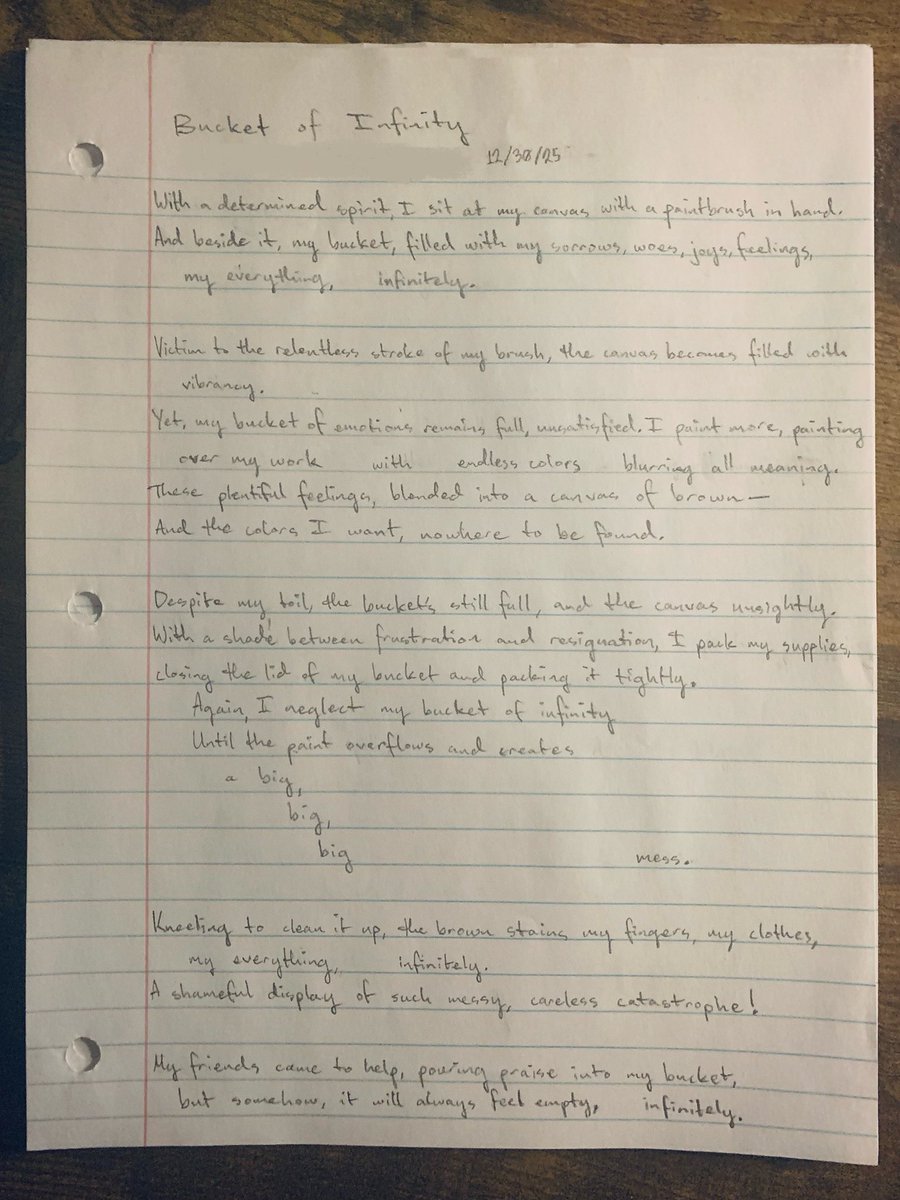 Bucket of Infinity
12/30/25
With a determined spirit, I sit at my canvas with a paintbrush in hand.
And beside it, my bucket, filled with my sorrows, woes, joys, feelings,
my everything, infinitely.
Victim to the relentless stroke of my brush, the canvas becomes filled with
vibrancy.
Yet, my bucket of emotions remains full, unsatisfied. I paint more, painting
over my work with endless colors blurring all meaning.
These plentiful feelings, blended into a canvas of brown—
And the colors I want, nowhere to be found.
Despite my toil, the bucket's still full, and the canvas unsightly.
With a shade between frustration and resignation, I pack my supplies,
closing the lid of my bucket and packing it tightly.
Again, I neglect my bucket of infinity
Until the paint overflows and creates
a big,
big,
big mess.
Kneeling to clean it up, the brown stains my fingers, my clothes,
my everything, infinitely.
A shameful display of such messy, careless catastrophe!
My friends came to help, pouring praise into my bucket,
but somehow, it will always feel empty, infinitely.